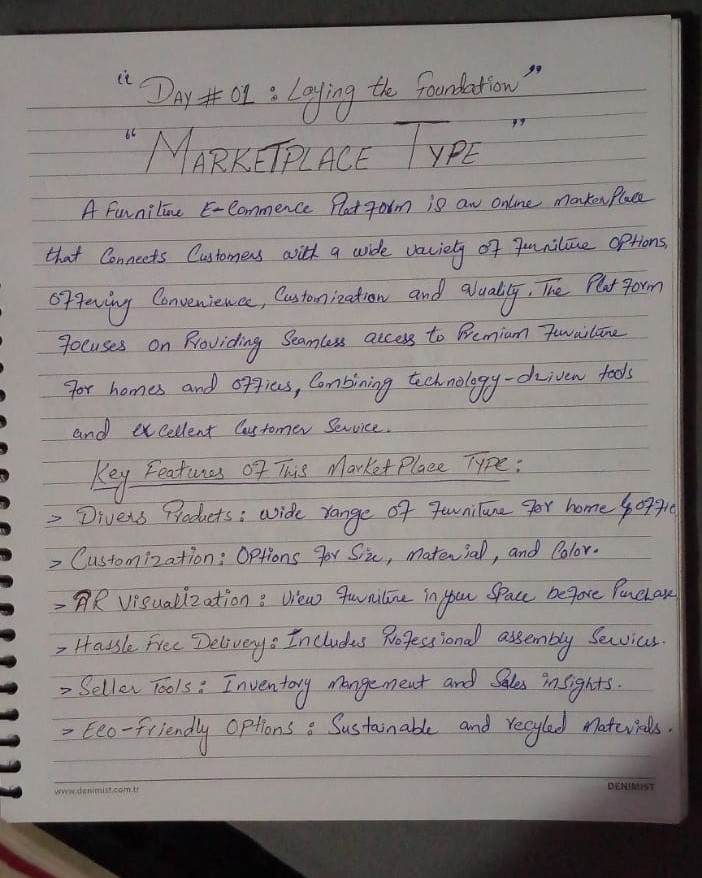 " Day # 01 : Laying the Foundation "
" MARKETPLACE TYPE "
A Furniture E-Commerce Platform is an online markerplace
that Connects Customers with a wide variety of furniture options,
offering Convenience, Customization and Quality. The Platform
focuses on Providing Seamless access to Premium Furniture
for homes and offices, Combining technology-driven tools
and excellent Customer Service.
Key Features Of This MarketPlace Type :
> Divers Products : wide range of furniture for home & offic
> Customization : Options for Size, Material, and Color.
> AR Visualization : View furniture in your Space before Purchase
> Hassle Free Delivery : Includes Professional assembly Services.
> Seller Tools : Inventory mangement and Sales insights.
> Eco-friendly Options : Sustainable and recyled Materials.
www.denimist.com.tr DENIMIST